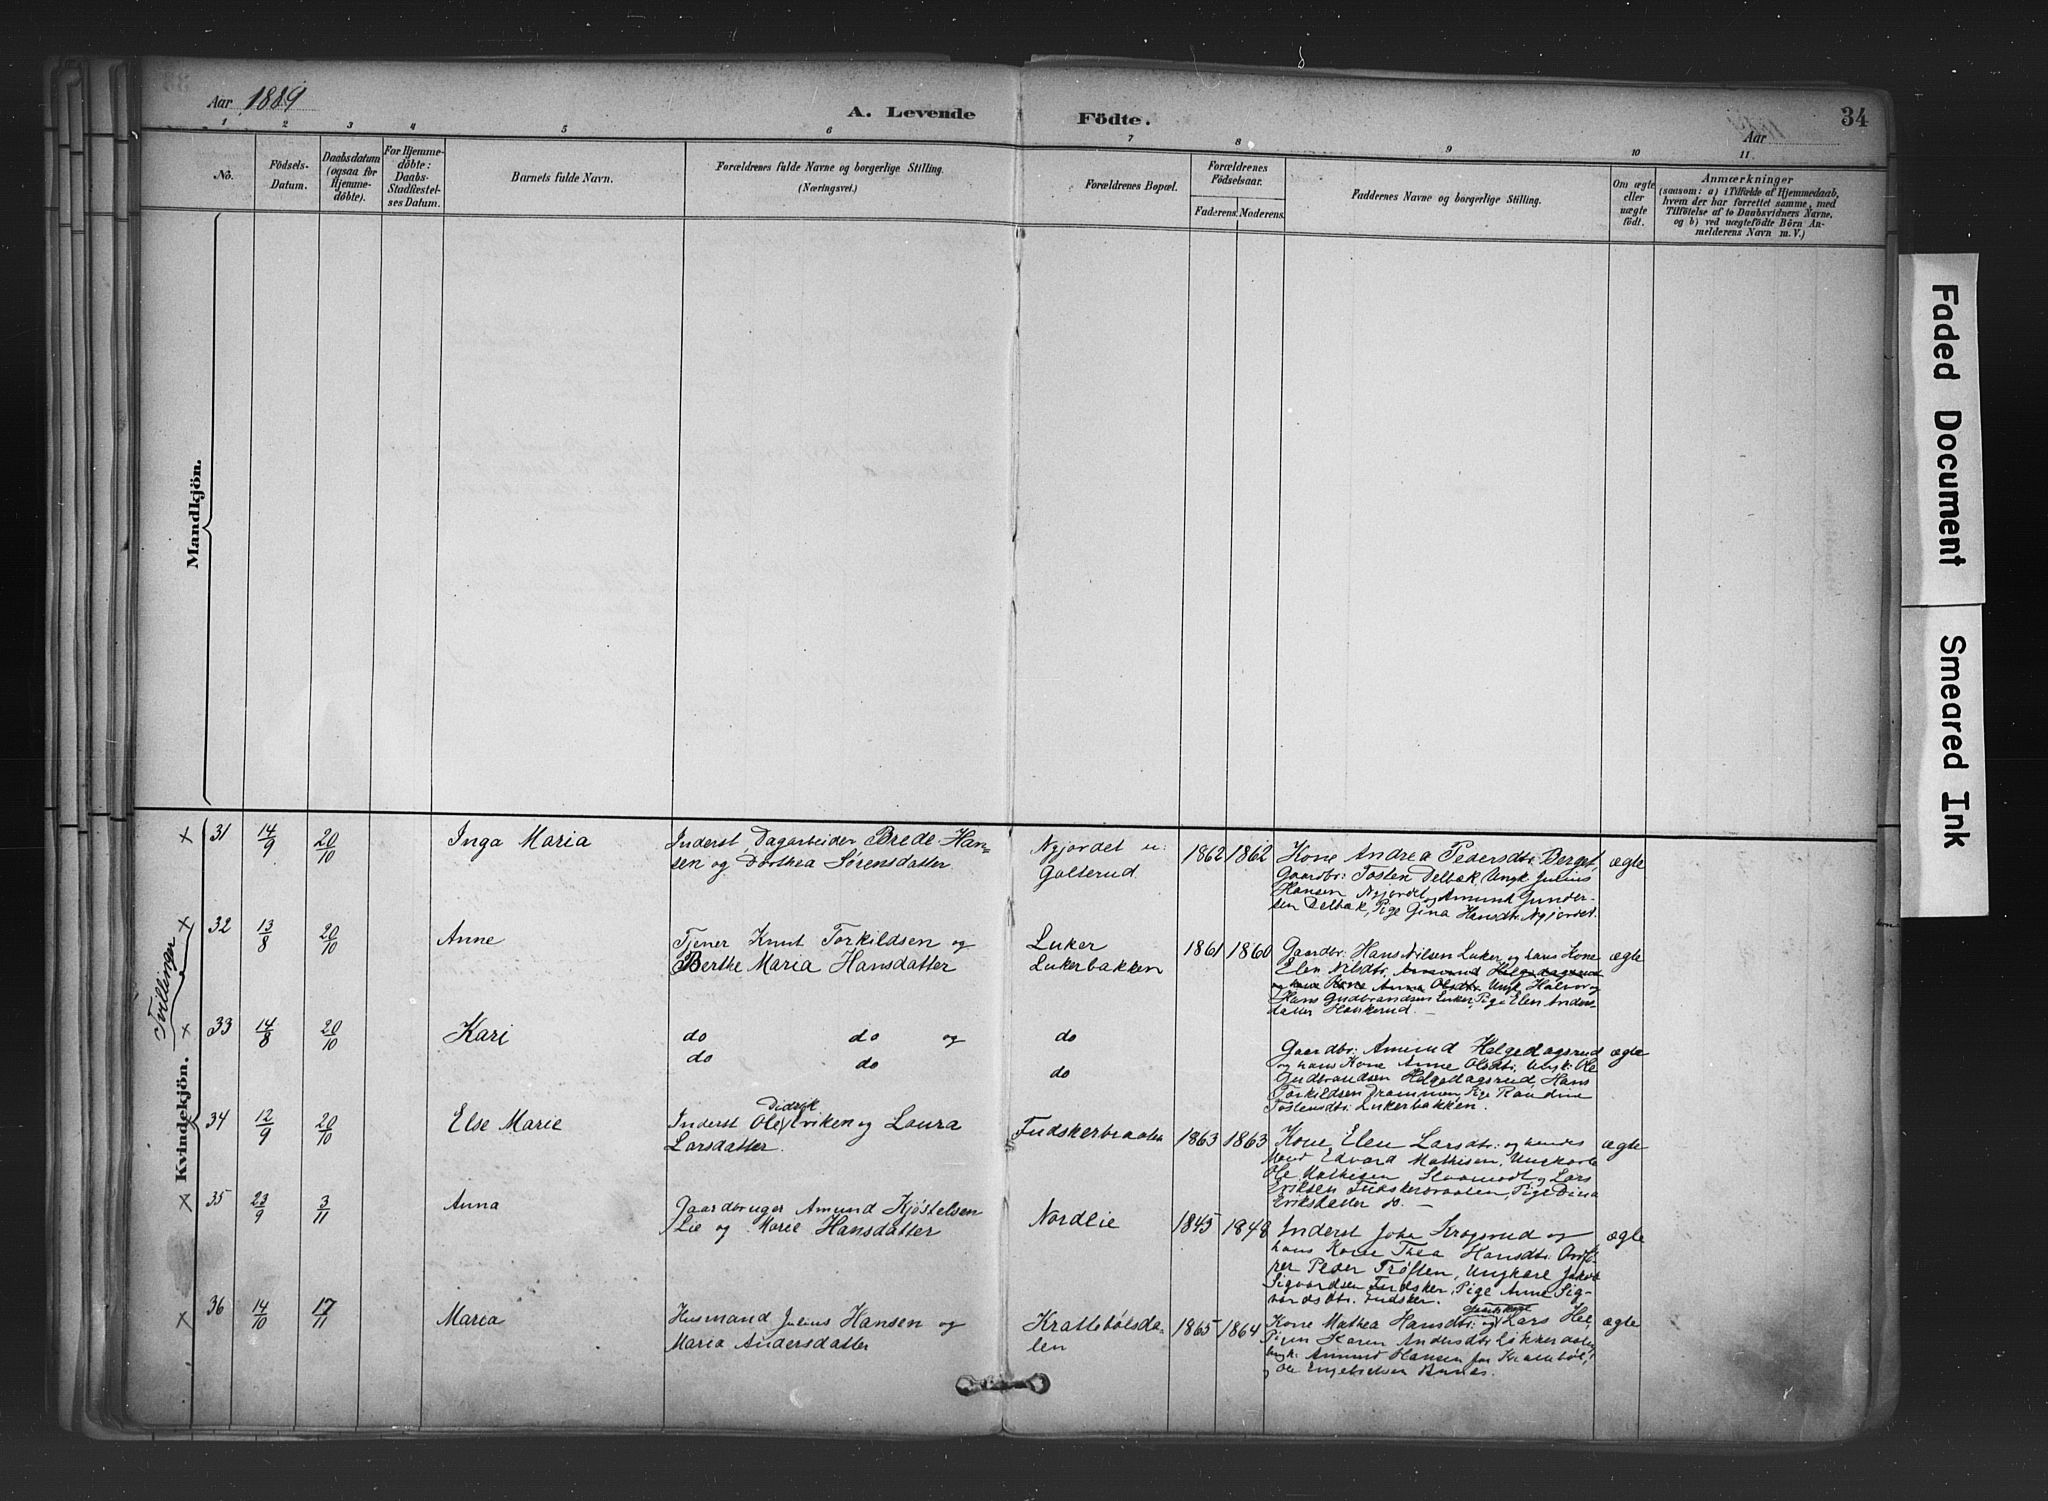 Aar 1889
A. Levende Födte.
34
Aar
1 2 3 4 5 6 7 8 9 10 11
No.
Födsels-Datum.
Daabsdatum (ogsaa for Hjemme-döbte).
For Hjemme-döbte: Daabs-Stadfæstel-ses Datum.
Barnets fulde Navn.
Forældrenes fulde Navne og borgerlige Stilling.
(Næringsvei.)
Forældrenes Bopæl.
Forældrenes Födselsaar.
Faderens. Moderens.
Faddernes Navne og borgerlige Stilling.
Om ægte eller uægte födt.
Anmærkninger
(saasom: a) i Tilfælde af Hjemmedaab,
hvem der har forrettet samme, med
Tilföielse af to Daabsvidners Navne,
og b) ved uægtefödte Börn An-
melderens Navn m. V.)
Mandkjön.
Kvindekjön.
Tvillinger
× 31 14/9 20/10 Inga Maria
Inderst, Dagarbeider Brede Han-
sen og Dorthea Sørensdatter
Nyjordet u:
Galterud.
1862 1862
Kone Andrea Pedersdtr Berget,
Gaardbr: Tosten Delbæk, Ungk Julius
Hansen Nyjordet og Amund Gunder-
sen Delbæk, Pige Gina Hansdtr Nyjordet.
ægte
× 32 13/8 20/10 Anne
Tjener Knut Torkildsen og
Berthe Maria Hansdatter
Luker
Lukerbakken
1861 1860
Gaardbr: Hans Nilsen Luker og hans Kone
Elen Nilsdtr. Amund Helgedagsrud
og hans Kone Anne Olsdtr. Ungk Halvor og
Hans Gudbrandsen Luker, Pige Elen Anders-
datter Haukerud. —
ægte
× 33 14/8 20/10 Kari
do do og
do do
do
do
Gaardbr: Amund Helgedagsrud
og hans Kone Anne Olsdtr: Ungk: Ole
Gudbrandsen Helgedagsrud, Hans
Torkildsen Drammen, Pige Randine
Tostensdtr: Lukerbakken.
ægte
× 34 12/9 20/10 Else Marie
Didrik
Inderst Ole Eriken og Laura
Larsdatter.
Fudskerbraaten
1863 1863
Kone Elen Larsdtr: og hendes
Mand Edvard Mathisen, Ungkarle
Ole Mathisen og Lars
Eriksen Fudskerbraaten, Pige Dina
Eriksdatter do. —
ægte
× 35 23/9 3/11 Anna
Gaardbruger Amund Kjøstelsen
Lie og Marie Hansdatter
Nordlie
1845 1848
Inderst Johan Krogsrud og
hans Kone Thea Hansdtr.
Peder Trøften, Ungkare Jakob
Sigvardsen Fudsker, Pige Anne Sig-
vardsdtr. Fudsker.
ægte
× 36 14/10 17/11 Maria
Husmand Julius Hansen og
Maria Andersdatter
Krattebølsda-
len
1865 1864
Kone Mathea Hansdtr: og Lars Hel,
Karen Andersdtr Løkkerdalen
Ungk: Amund Hansen fra Krattebøl,
og Ole Engebretsen
ægte
Faded Document
Smeared Ink